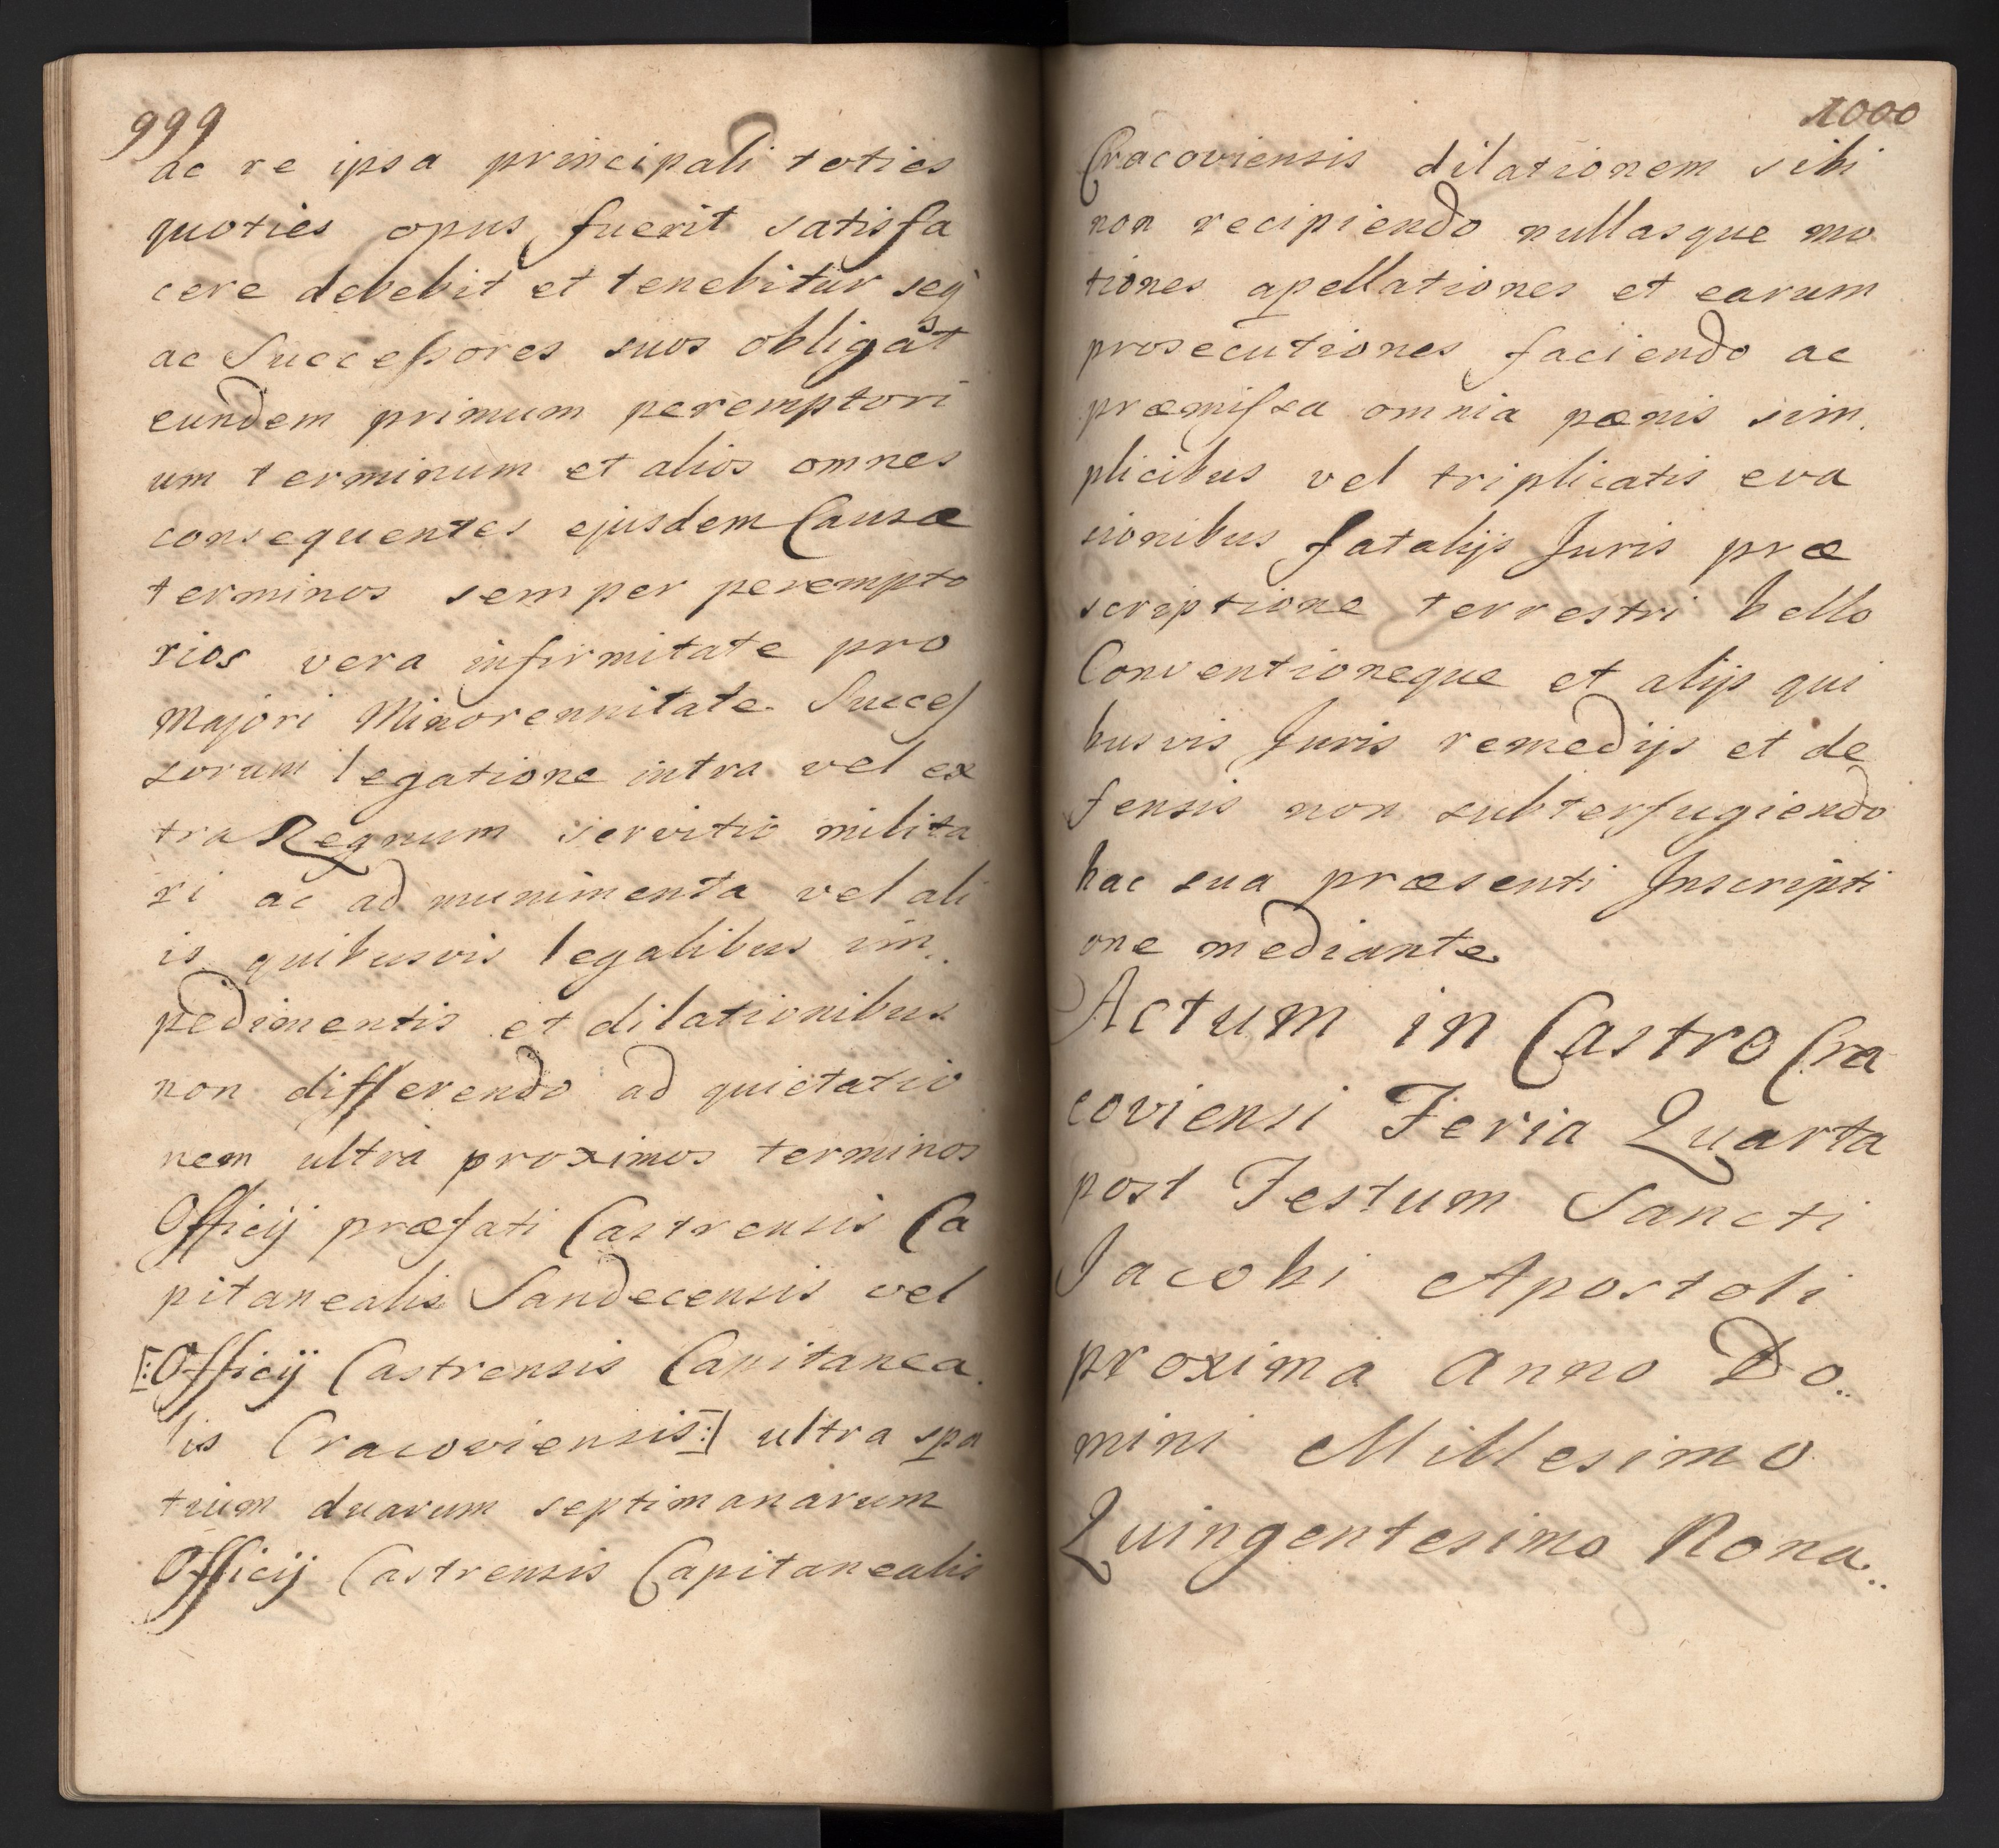 999
ac re ipsa principali toties
quoties opus fuerit satisfa
cere debebit et tenebitur seq
ac Successores suos obligat
eundem primum peremptori
um terminum et alios omnes
consequentes ejusdem Causæ
terminos semper perempto
rios vera infirmitate pro
majori Minorennitate Succes
sorum legatione intra vel ex
tra Regnum servitio milita
ri ac ad munimenta vel ali
is quibusvis legalibus im..
pedimentis et dilationibus
non differendo ad quietatio
nem ultra proximos terminos
Officij præfati Castrensis Ca
pitanealis Sandecensis vel
[:Officij Castrensis Capitanea.
lis Cracoviensis:] ultra spa
tium duarum septimanarum
Officij Castrensis Capitanealis
1000
Cracoviensis dilationem sibi
non recipiendo nullasque mo
tiones apellationes et earum
prosecutiones faciendo ac
præmissa omnia pænis sim.
plicibus vel triplicatis eva
sionibus fatalijs Juris præ
scriptione terrestri bello
Conventioneque et alijs qui
busvis Juris remedijs et de
fensis non subterfugiendo
hac sua præsenti Inscripti
one mediante
Actum in Castro Cra
coviensi Feria Quarta
post Festum Sancti
Jacobi Apostoli
proxima Anno Do..
mini Millesimo
Quingentesimo Nona..